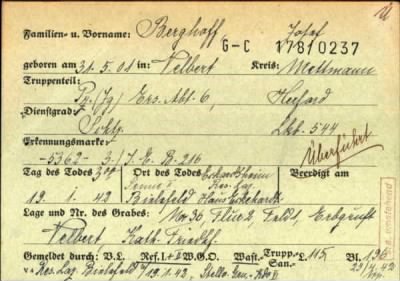 Familien- u. Vorname: Berghoff Josef
G-C 178/0237
geboren am 31.5.01 in: Velbert Kreis: Mettmann
Truppenteil:
Pz.(Jg) Ers. Abt. 6, Herford
Dienstgrad:
Schtz. Lkt. 544
Erkennungsmarke:
-5362- 3./J.E.R. 216
Überführt
Tag des Todes Ort des Todes Beerdigt am
19.1.42 Bielefeld Haus
Lage und Nr. des Grabes: No 36 Flur 2 Feld 1, Erbgruft
Velbert, Kath. Friedhf.
Gemeldet durch: V.L. Ref. I+II W.G.O. Wast.- Trupp.- San.- L 115 Bl. 136
v. Res. Laz. Bielefeld v. 19.1.42, Stellv. Gen. Kdo